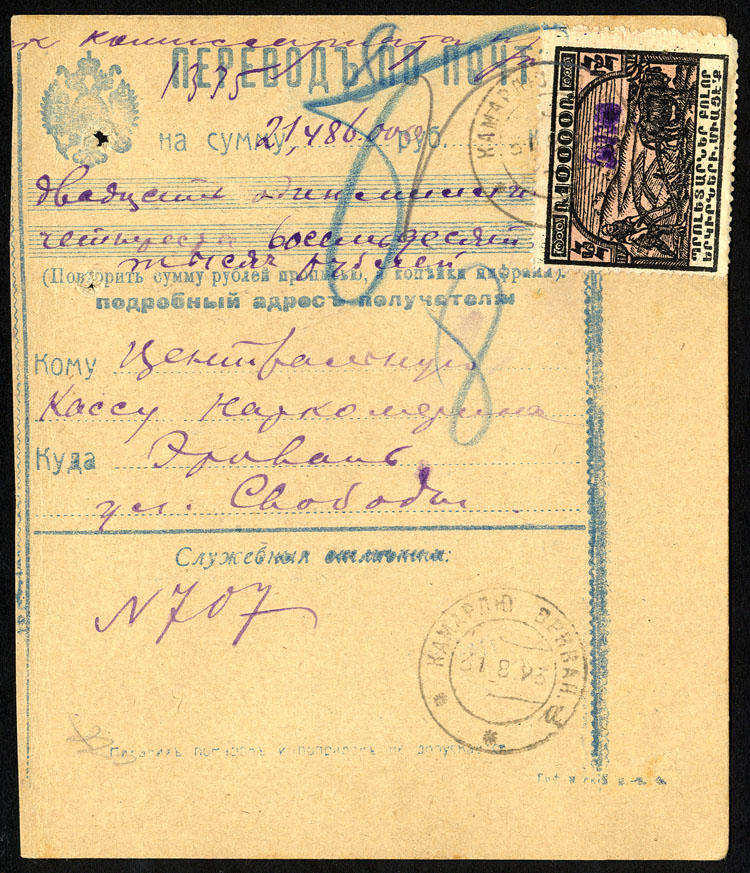 комиссариата
ПЕРЕВОДЪ ПО ПОЧТ
1335
на сумму 21,486.000 руб. К
двадцать один миллион
четыреста восемьдесят
тысяч рублей
(Повторить сумму рублей прописью, а копѣйки цифрами).
подробный адресъ получателя
Кому Центральную
Кассу Наркомфина
Куда Эривань
ул. Свободы
Служебныя отмѣтки:
N 707
КАМАРЛЮ ЭРИВАН.
КАМАРЛЮ
Ռ.10000Ռ.
ՊՐՈԼԵՏԱՐՆԵՐ ԲՈԼՈՐ
ԵՐԿԻՐՆԵՐԻ, ՄԻԱՑԷՔ